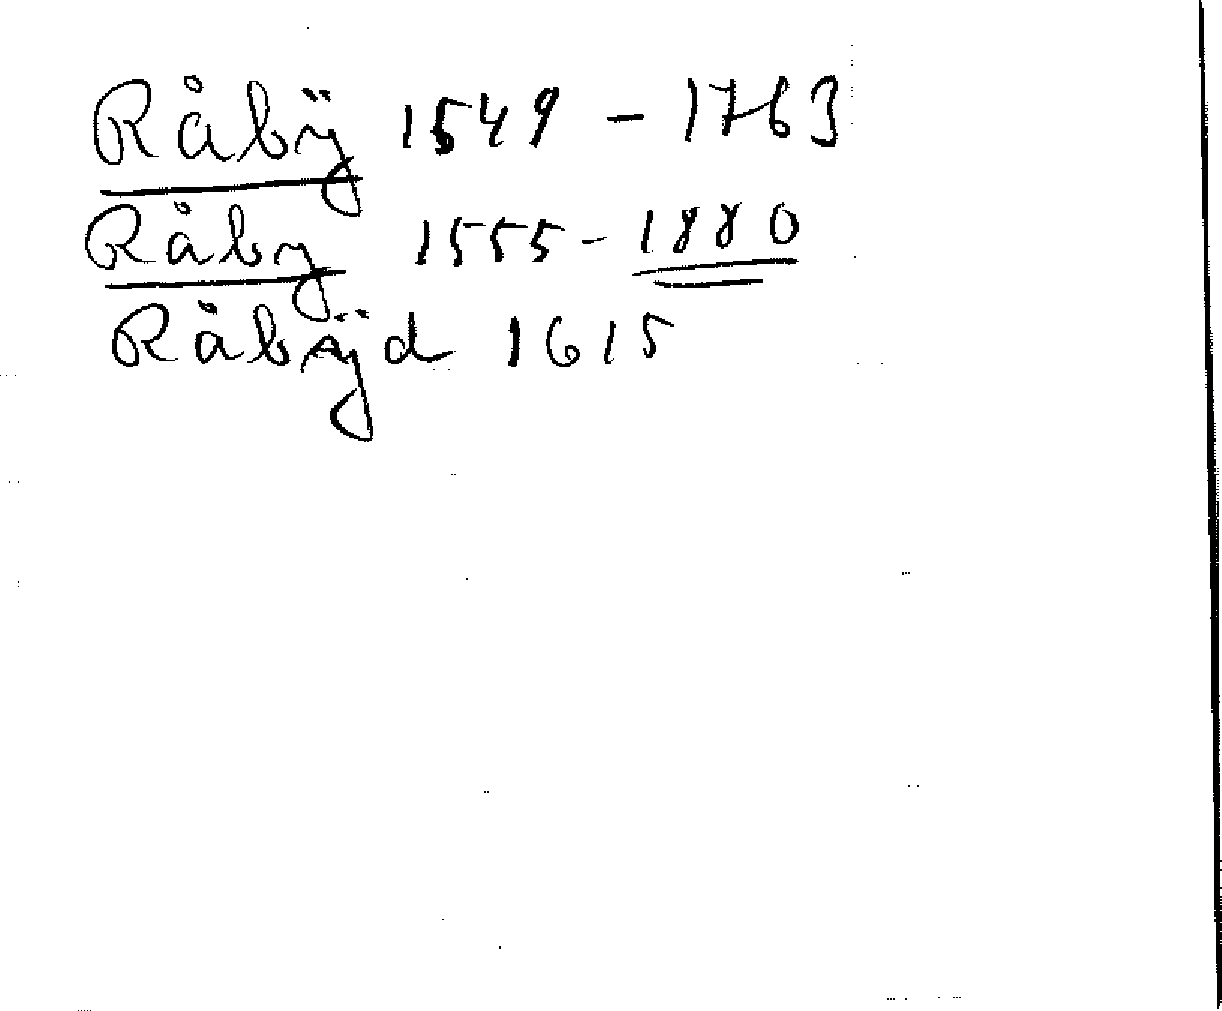 Råbÿ 1549 - 1763
Råby 1555 - 1880
Råbÿd 1615